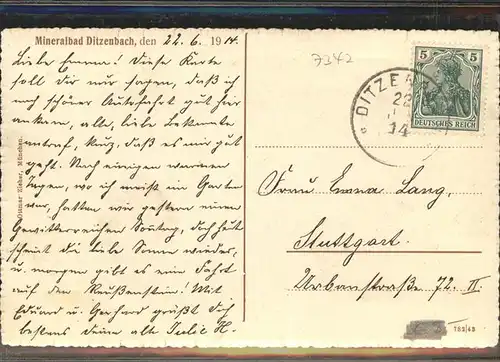 Mineralbad Ditzenbach, den 22. 6. 1914.
Liebe Emma! Diese Karte
soll dir nur sagen, daß ich
nach schöner Autofahrt gut hier
ankam, alte, liebe Bekannte
antraf, kurz, daß es mir gut
geht. Nach einigen warmen
Tagen, wo ich meist im Garten
war, hatten wir gestern einen
Gewitterreichen Sonntag, doch heut
scheint die liebe Sonne wieder,
u. morgen gibt es eine Fahrt
auf den Reußenstein! Mit
Eduard u. Gerhard grüßt dich
bestens deine alte Julie H.
Ottmar Zieher, München.
7342
DITZEN
22
14
5 5
DEUTSCHES REICH
Frau Emma Lang.
Stuttgart.
Urbanstraße 72. II.
782/43